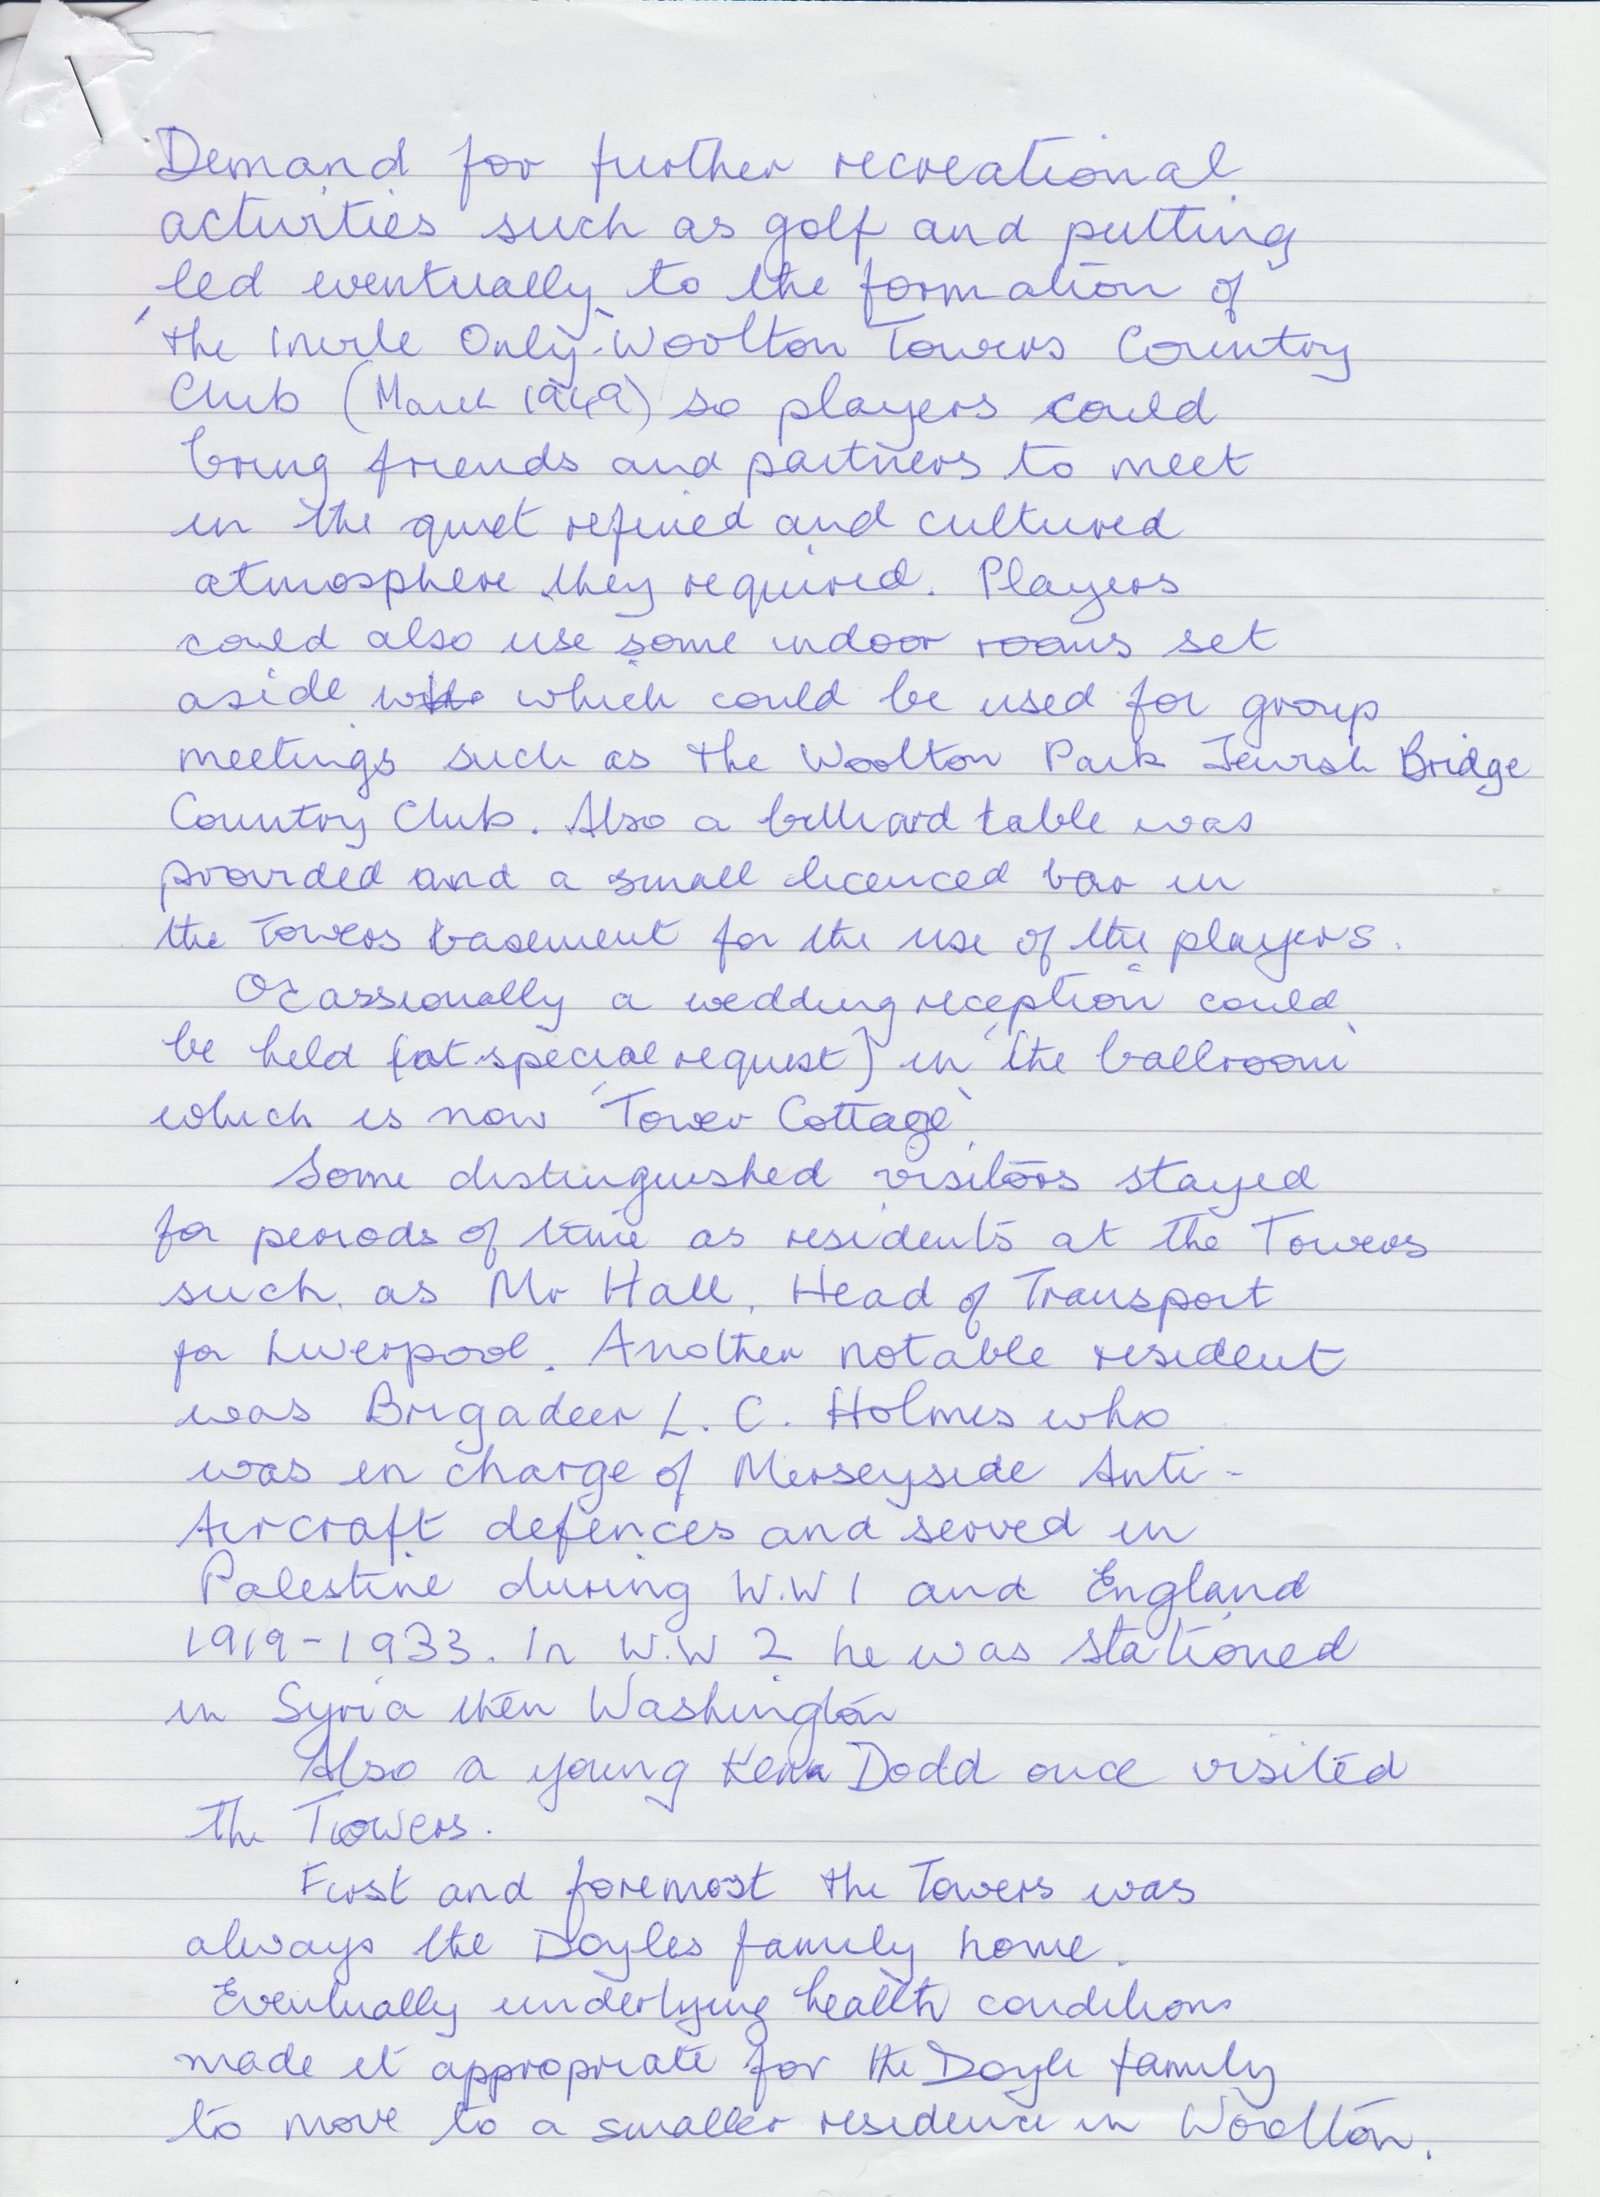 Demand for further recreational
activities such as golf and putting
led eventually to the formation of
'the Invite Only' Woolton Towers Country
Club (March 1949) so players could
bring friends and partners to meet
in the quiet refined and cultured
atmosphere they required. Players
could also use some indoor rooms set
aside which could be used for group
meetings such as the Woolton Park Jewish Bridge
Country Club. Also a billiard table was
provided and a small licenced bar in
the Towers basement for the use of the players.
Ocassionally a wedding reception could
be held (at special request) in 'the ballroom'
which is now 'Tower Cottage'.
Some distinguished visitors stayed
for periods of time as residents at the Towers
such as Mr Hall, Head of Transport
for Liverpool. Another notable resident
was Brigadeer L. C. Holmes who
was in charge of Merseyside Anti-
Aircraft defences and served in
Palestine during W.W 1 and England
1919-1933. In W.W 2 he was stationed
in Syria then Washington
Also a young Ken Dodd once visited
the Towers.
First and foremost the Towers was
always the Doyles family home.
Eventually underlying health conditions
made it appropriate for the Doyle family
to move to a smaller residence in Woolton.